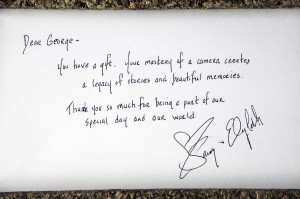 Dear George -
You have a gift. Your mastery of a camera creates
a legacy of stories and beautiful memories.
Thank you so much for being a part of our
special day and our world.